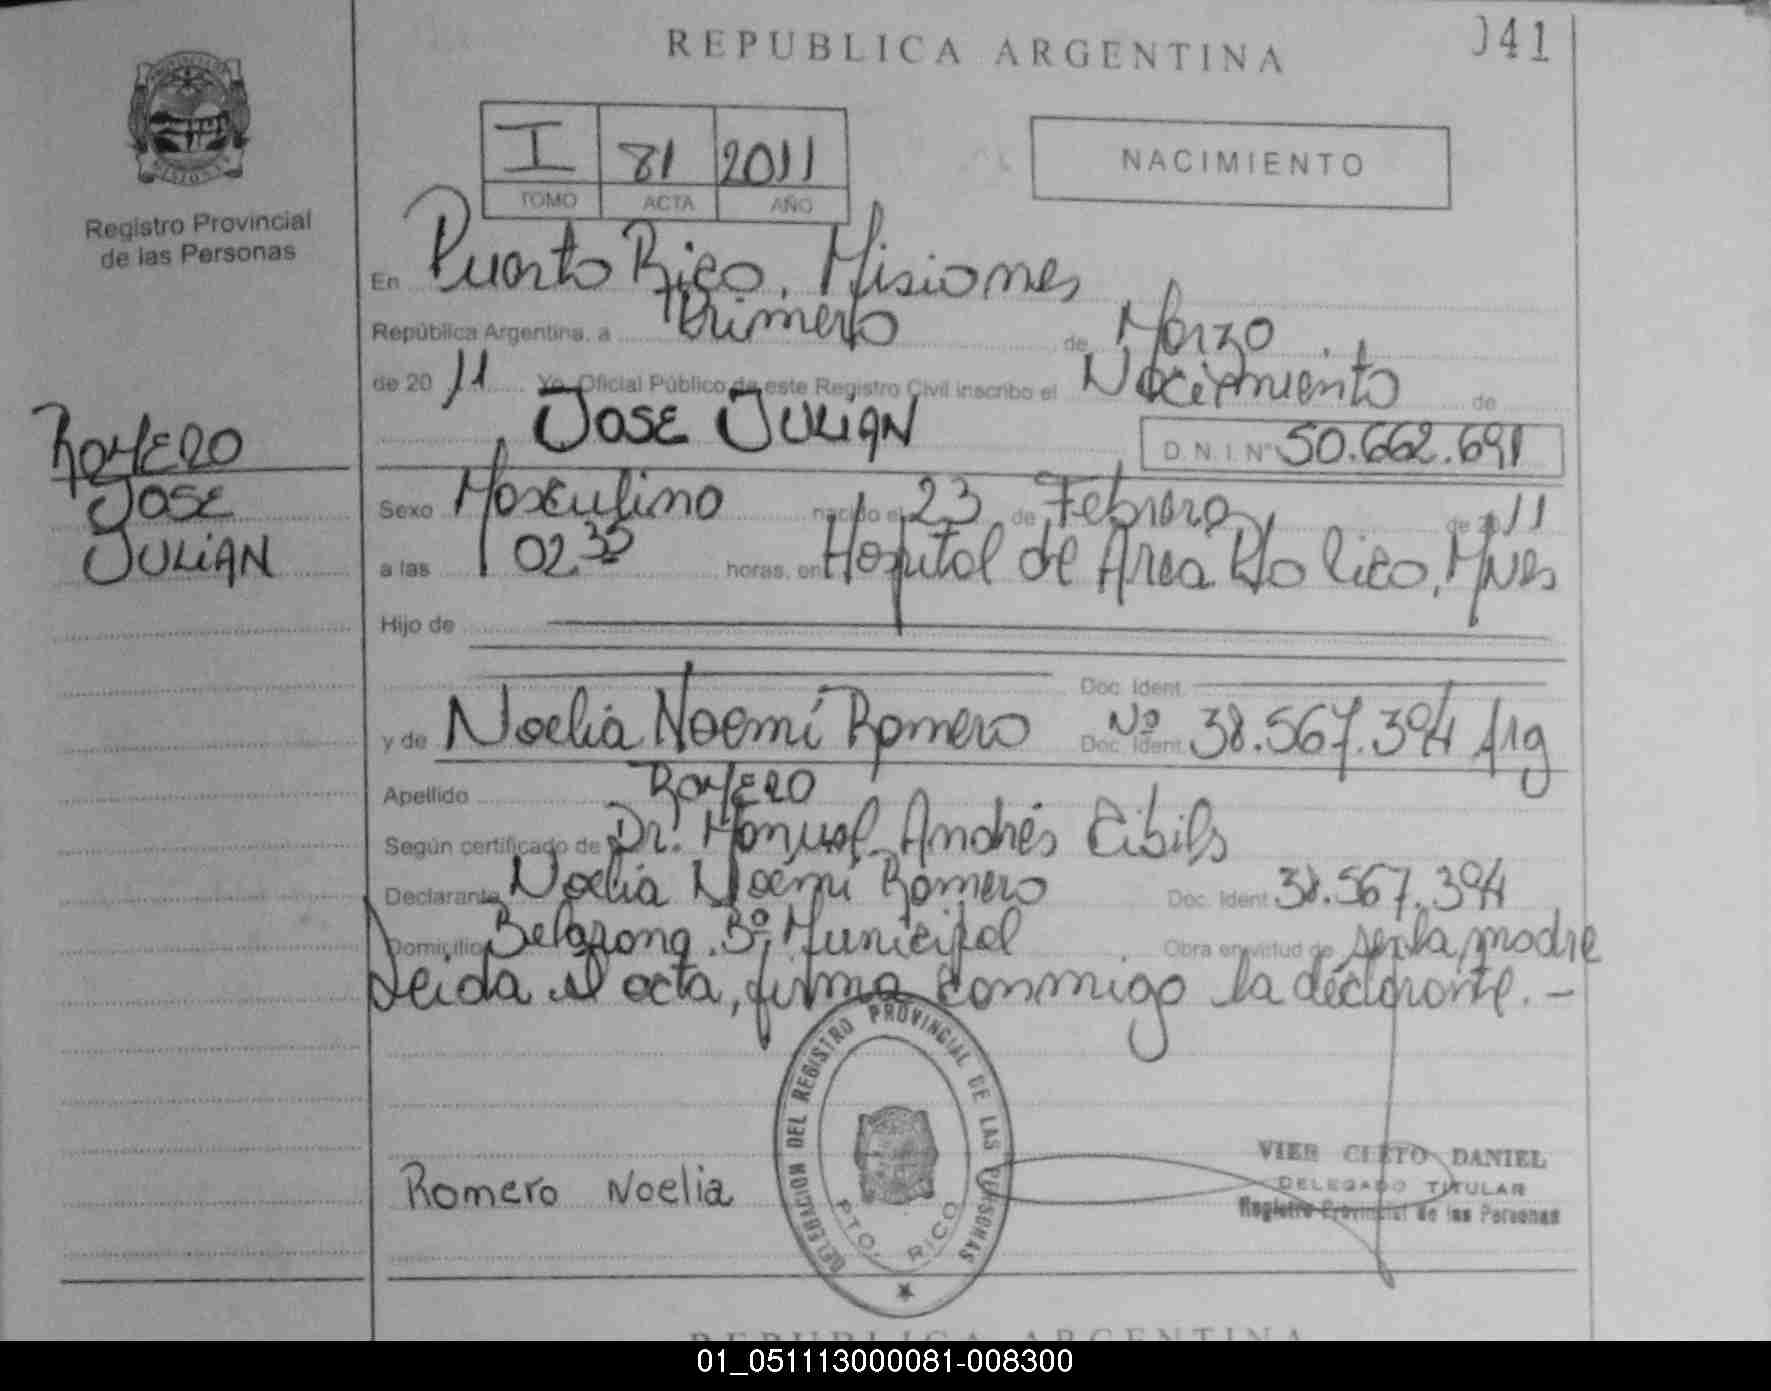 REPUBLICA ARGENTINA
041
Registro Provincial
de las Personas
I 81 2011
TOMO ACTA AÑO
NACIMIENTO
En Puerto Rico, Misiones
República Argentina, a Primero de Marzo
de 20 11 Yo, Oficial Público de este Registro Civil inscribo el Nacimiento de
JOSE JULIAN D.N.I. Nº 50.662.691
ROMERO
JOSE
JULIAN
Sexo Masculino nacido el 23 de Febrero de 2011
a las 02.35 horas, en Hospital de Area Pto Rico, Mnes
Hijo de
Doc. Ident.
y de Noelia Noemí Romero Doc. Ident. Nº 38.567.394 Arg
Apellido ROMERO
Según certificado de Dr. Manuel Andrés Cibils
Declarante Noelia Noemí Romero Doc. Ident. 38.567.394
Domicilio Bº Municipal Obra en virtud de ser la madre
Leida el acta, firma conmigo la declarante.-
DELEGACION DEL REGISTRO PROVINCIAL DE LAS PERSONAS
PTO. RICO
Romero Noelia
VIER CLETO DANIEL
DELEGADO TITULAR
Registro Provincial de las Personas
REPUBLICA ARGENTINA
01_051113000081-008300